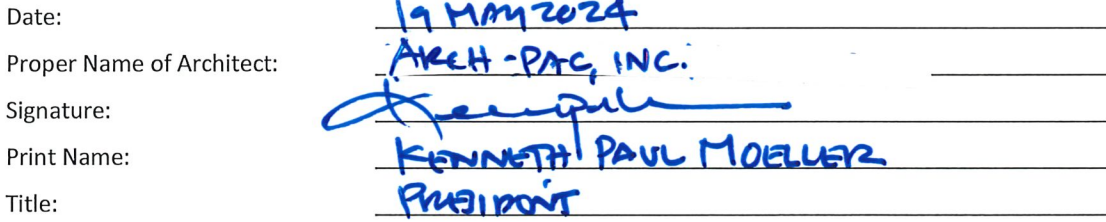 Date: 19 MAY 2024
Proper Name of Architect: ARCH-PAC, INC.
Signature:
Print Name: KENNETH PAUL MOELLER
Title: PRESIDENT